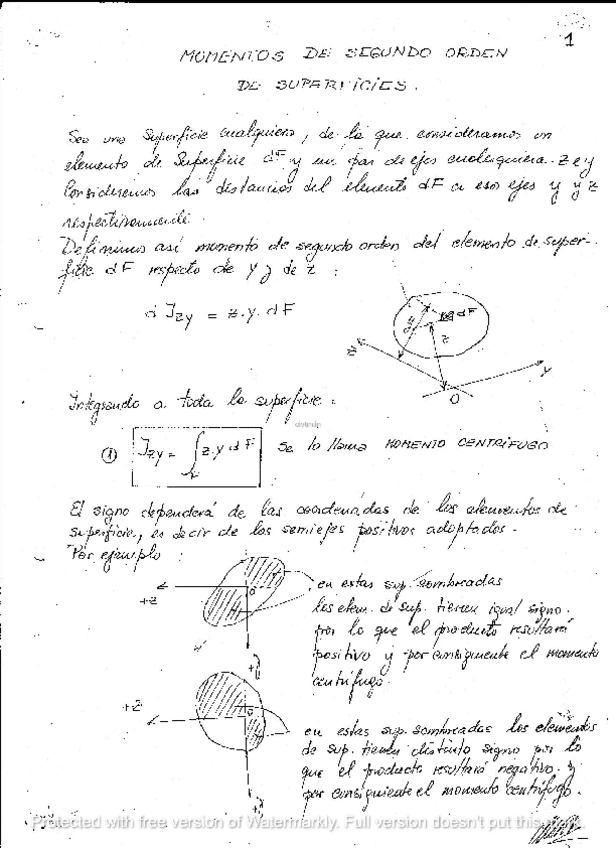 1
MOMENTOS DE SEGUNDO ORDEN
DE SUPERFICIES.
Sea una Superficie cualquiera, de la que consideramos un
elemento de Superficie dF y un par de ejes cualesquiera z e y
Consideremos las distancias del elemento dF a esos ejes y y z
respectivamente.
Definimos así momento de segundo orden del elemento de super-
ficie dF respecto de y y de z :
d Jzy = z.y.dF
y
dF
z
z
y
O
Integrando a toda la superficie:
① Jzy = ∫F z.y dF Se lo llama MOMENTO CENTRÍFUGO
El signo dependerá de las coordenadas de los elementos de
superficie, es decir de los semiejes positivos adoptados.
Por ejemplo :
+z
o
+y
en estas sup. sombreadas
los elem. de sup. tienen igual signo.
por lo que el producto resultará
positivo y por consiguiente el momento
centrífugo.
+z
o
+y
en estas sup. sombreadas los elementos
de sup. tienen distinto signo por lo
que el producto resultará negativo y
por consiguiente el momento centrífugo.
Protected with free version of Watermarkly. Full version doesn't put this mark.